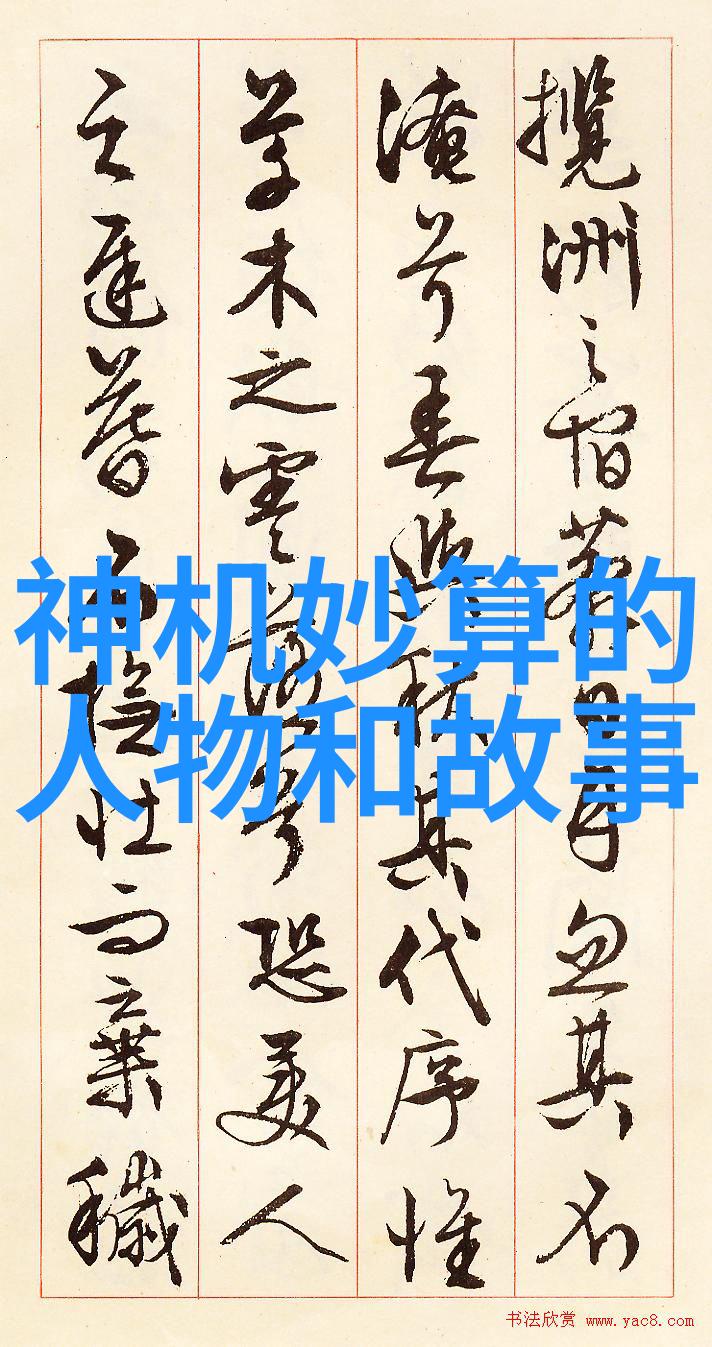 神机妙算的
人物和故事
攬洲之宿莽日月忽其不
淹兮春與秋其代序惟
草木之零落兮恐美人
之遲暮不撫壯而棄穢
书法欣赏 www.yac8.com